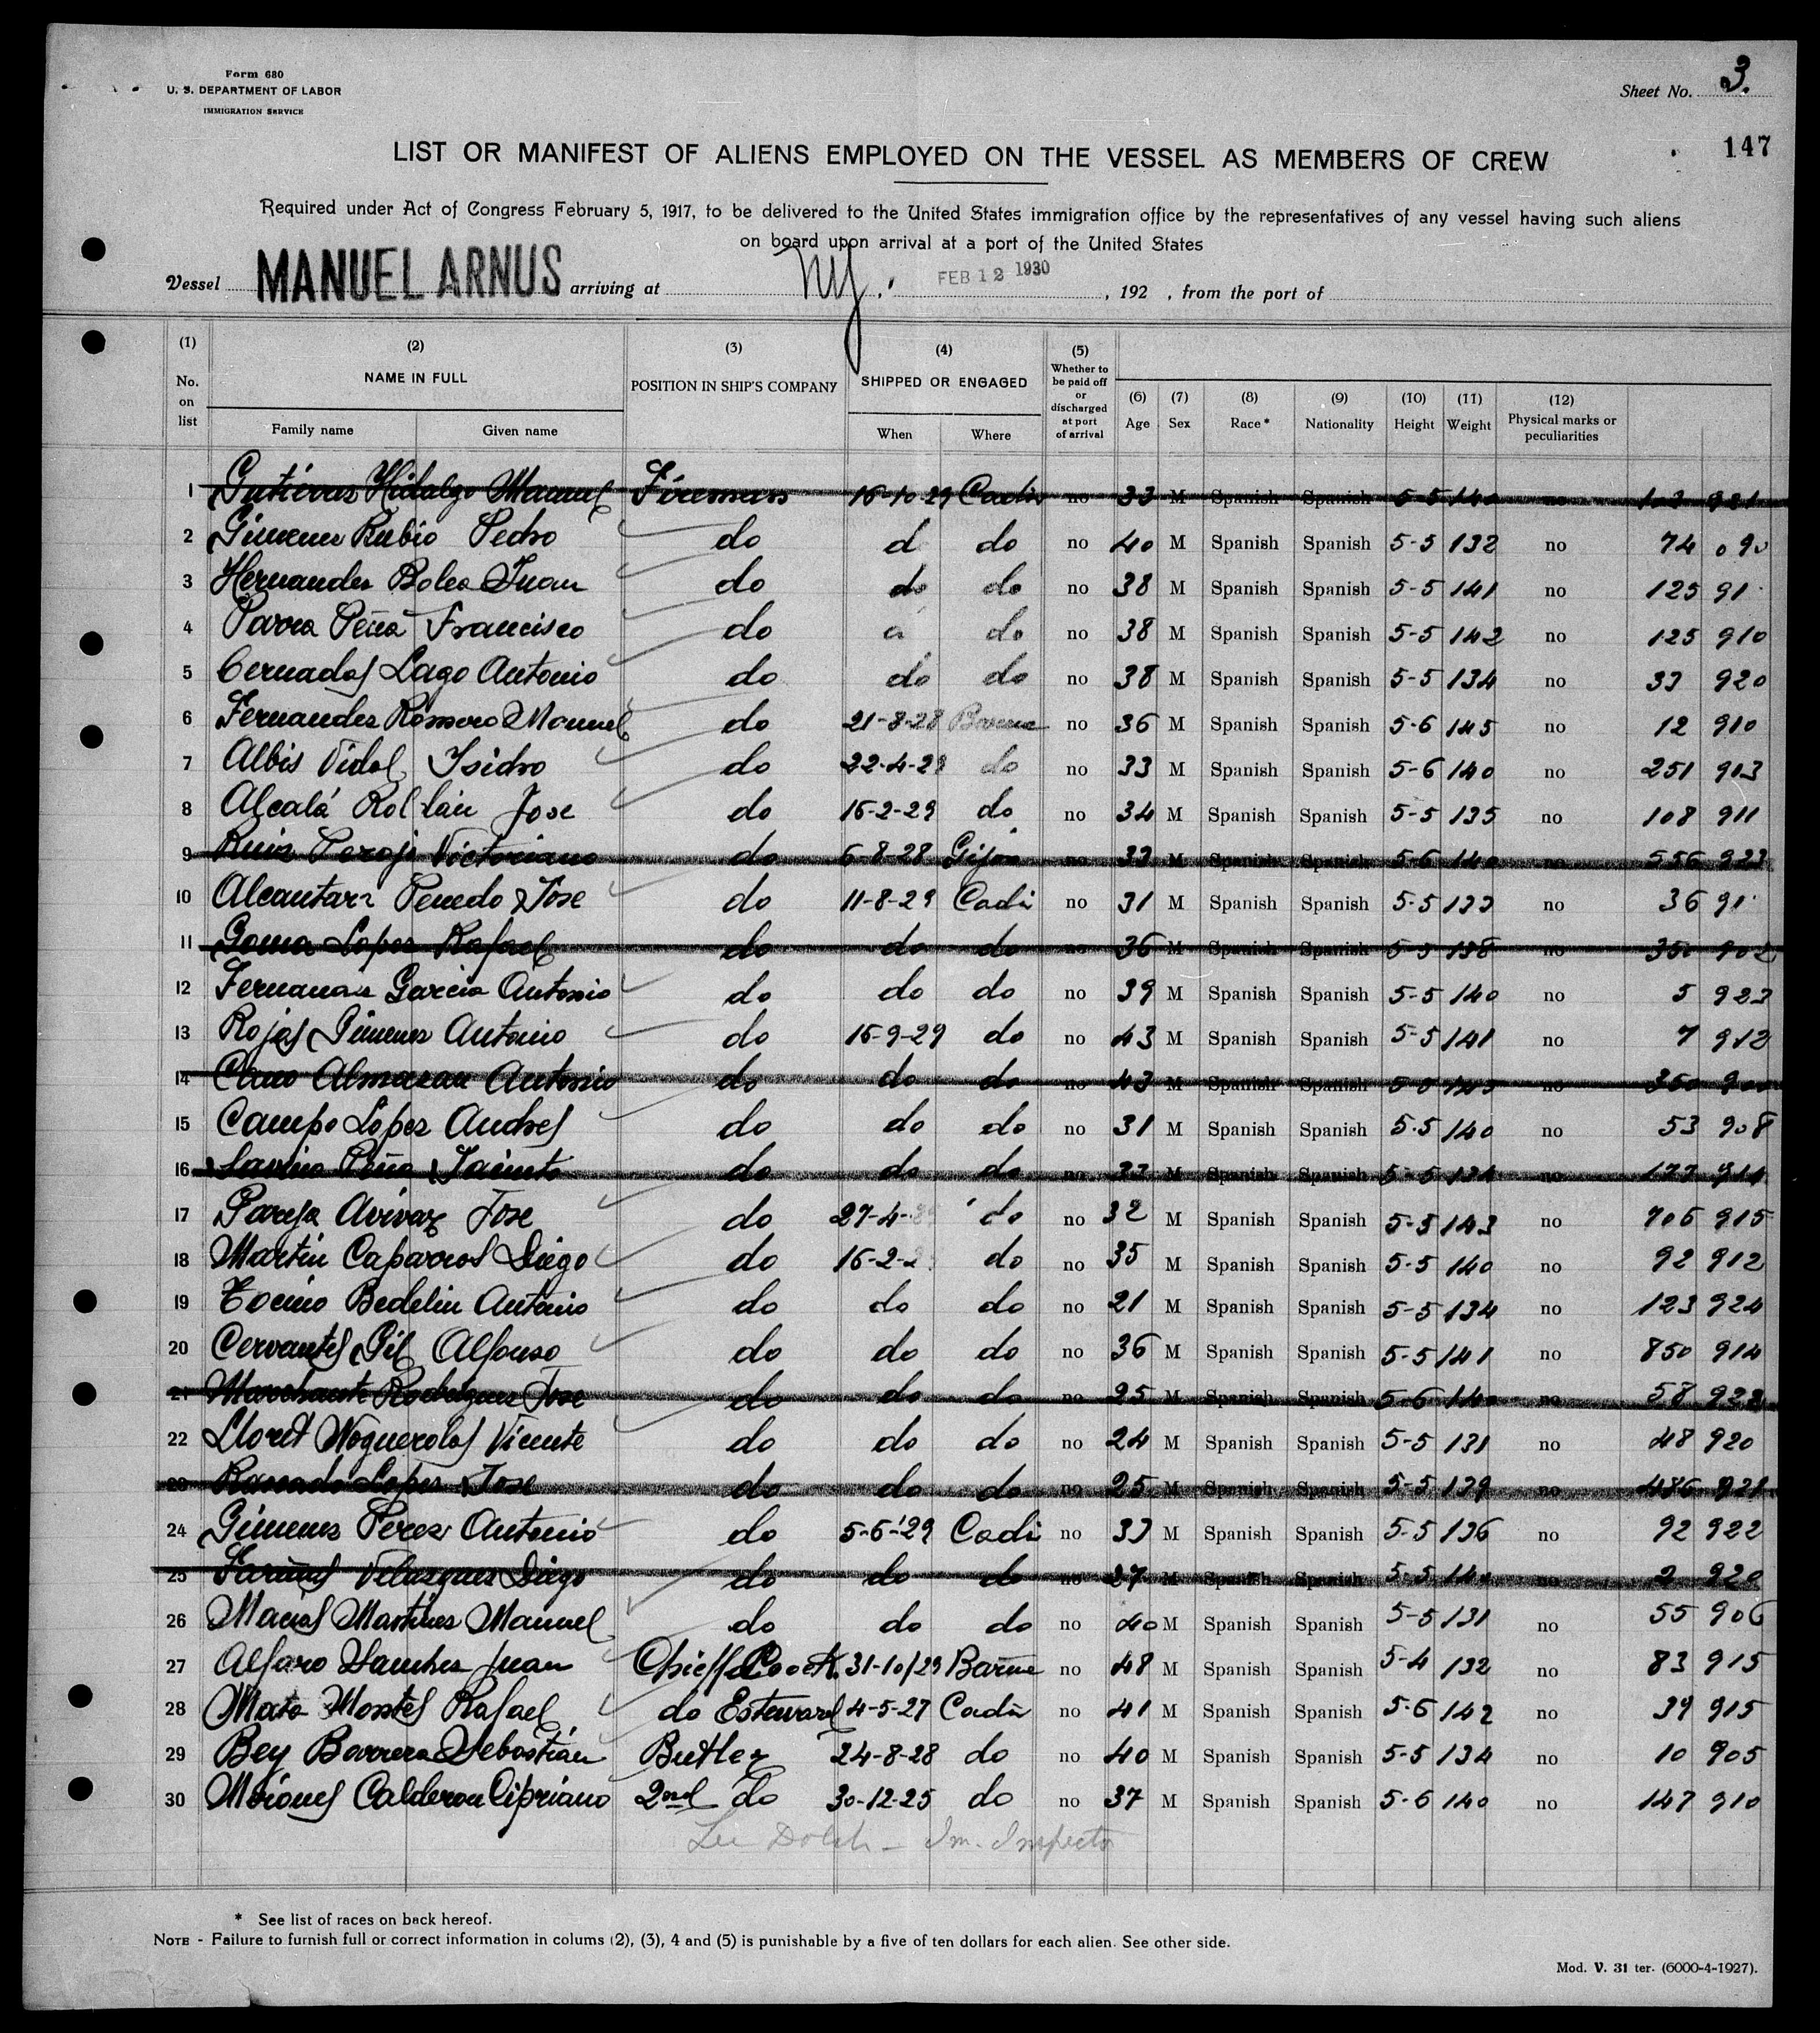 Form 680
U. S. DEPARTMENT OF LABOR
IMMIGRATION SERVICE
Sheet No. 3.
147
LIST OR MANIFEST OF ALIENS EMPLOYED ON THE VESSEL AS MEMBERS OF CREW
Required under Act of Congress February 5, 1917, to be delivered to the United States immigration office by the representatives of any vessel having such aliens
on board upon arrival at a port of the United States
Vessel MANUEL ARNUS arriving at NY. FEB 12 1930, 192 , from the port of
(1) No. on list
(2) NAME IN FULL Family name Given name
(3) POSITION IN SHIP'S COMPANY
(4) SHIPPED OR ENGAGED When Where
(5) Whether to be paid off or discharged at port of arrival
(6) Age (7) Sex (8) Race* (9) Nationality (10) Height (11) Weight (12) Physical marks or peculiarities
1 Hidalgo Manuel 16-10-29 no 33 M Spanish Spanish 5-5 140 no
2 Gimenez Rubio Pedro do do no 40 M Spanish Spanish 5-5 132 no 74 090
3 Hernandez Juan do do do no 38 M Spanish Spanish 5-5 141 no 125 91
4 Parra Peña Francisco do do no 38 M Spanish Spanish 5-5 142 no 125 910
5 Cernadas Lago Antonio do do do no 38 M Spanish Spanish 5-5 134 no 33 920
6 Fernandez Romero Manuel do 21-8-28 no 36 M Spanish Spanish 5-6 145 no 12 910
7 Albis Vidal Isidro do 22-4-29 do no 33 M Spanish Spanish 5-6 140 no 251 913
8 Alcalá Jose do 16-2-29 do no 34 M Spanish Spanish 5-5 135 no 108 911
9 Ruiz Victoriano do 6-8-28 Gijon no 33 M Spanish Spanish 5-6 140 no 556 923
10 Alcantara Penedo Jose do 11-8-29 Cadi no 31 M Spanish Spanish 5-5 133 no 36 91
11 Lopez Rafael do do do no 36 M Spanish Spanish 5-5 138 no 350 902
12 Garcia Antonio do do do no 39 M Spanish Spanish 5-5 140 no 5 923
13 Rojas Gimenez Antonio do 16-9-29 do no 43 M Spanish Spanish 5-5 141 no 7 912
14 Cano Almazan Antonio do do do no 43 M Spanish Spanish no 350
15 Campo Lopez Andres do do do no 31 M Spanish Spanish 5-5 140 no 53 908
16 Peña Jacinto do do do no M Spanish Spanish 5-5 134 no
17 Pareja Jose do 27-4- do no 32 M Spanish Spanish 5-5 143 no 706 915
18 Martin Caparros Diego do 16-2-2 do no 35 M Spanish Spanish 5-5 140 no 92 912
19 Tocino Bedelin Antonio do do do no 21 M Spanish Spanish 5-5 134 no 123 924
20 Cervantes Gil Alfonso do do do no 36 M Spanish Spanish 5-5 141 no 850 914
21 Marchante Rodriguez Jose do do do no 25 M Spanish Spanish 5-6 140 no 58
22 Lloret Noguerolas Vicente do do do no 24 M Spanish Spanish 5-5 131 no 48 920
23 Lopez Jose do do do no 25 M Spanish Spanish 5-5 139 no 486 921
24 Gimenez Perez Antonio do 5-6-29 Cadi no 33 M Spanish Spanish 5-5 136 no 92 922
25 Velazquez Diego do do do no 27 M Spanish Spanish 5-5 140 no 2 920
26 Macias Martinez Manuel do do do no 40 M Spanish Spanish 5-5 131 no 55 906
27 Alfaro Sanchez Juan Chieff Coock 31-10/29 no 48 M Spanish Spanish 5-4 132 no 83 915
28 Mato Montes Rafael do Esteward 4-5-27 Cadiz no 41 M Spanish Spanish 5-6 142 no 39 915
29 Bey Barrera Sebastián Butler 24-8-28 do no 40 M Spanish Spanish 5-5 134 no 10 905
30 Calderon Cipriano 2nd do 30-12-25 do no 37 M Spanish Spanish 5-6 140 no 147 910
Im. Inspector
* See list of races on back hereof.
NOTE - Failure to furnish full or correct information in colums (2), (3), 4 and (5) is punishable by a five of ten dollars for each alien. See other side.
Mod. V. 31 ter. (6000-4-1927).